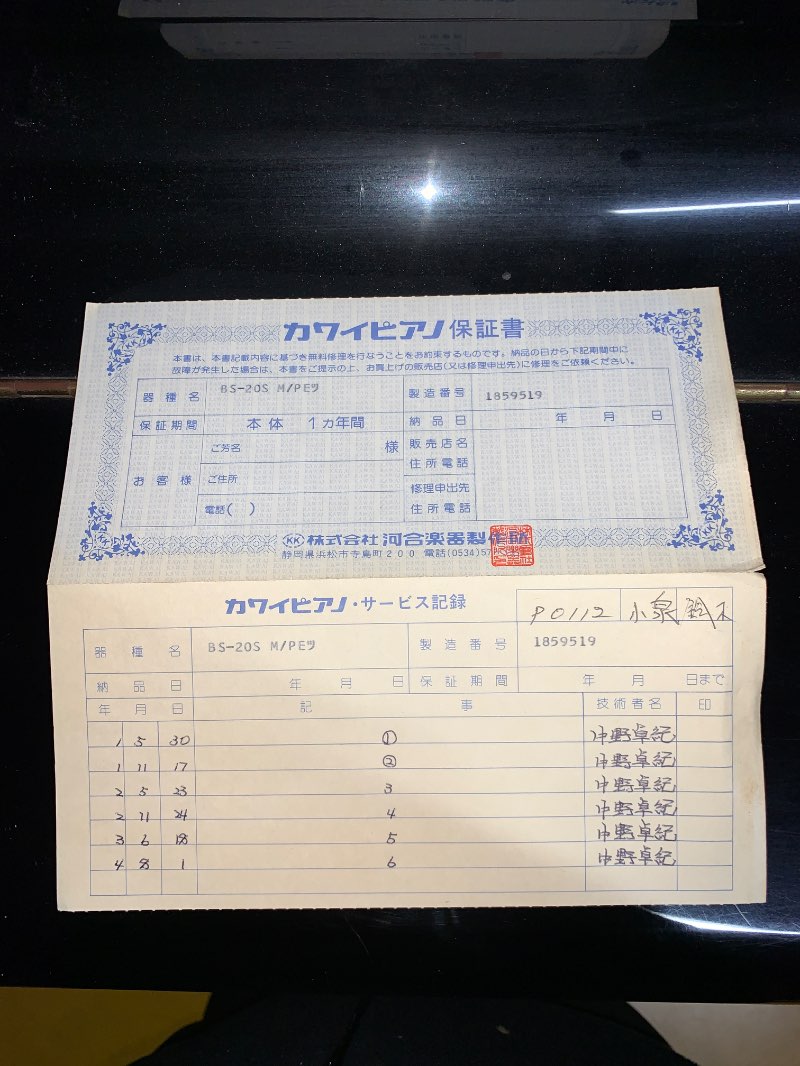 カワイピアノ 保証書
本書は、本書記載内容に基づき無料修理を行なうことをお約束するものです。納品の日から下記期間中に
故障が発生した場合は、本書をご提示の上、お買上げの販売店(又は修理申出先)に修理をご依頼ください。
器種名 BS-20S M/PEツ 製造番号 1859519
保証期間 本体 1ヵ年間 納品日 年 月 日
お客様 ご芳名 様 販売店名
住所電話
ご住所 修理申出先
電話( ) 住所電話
KK 株式会社 河合楽器製作所
静岡県浜松市寺島町200 電話(0534)57
カワイピアノ・サービス記録 P0112 小泉 鈴木
器種名 BS-20S M/PEツ 製造番号 1859519
納品日 年 月 日 保証期間 年 月 日まで
年 月 日 記事 技術者名 印
1 5 30 ① 中野卓紀
1 11 17 ② 中野卓紀
2 5 23 3 中野卓紀
2 11 24 4 中野卓紀
3 6 18 5 中野卓紀
4 8 1 6 中野卓紀